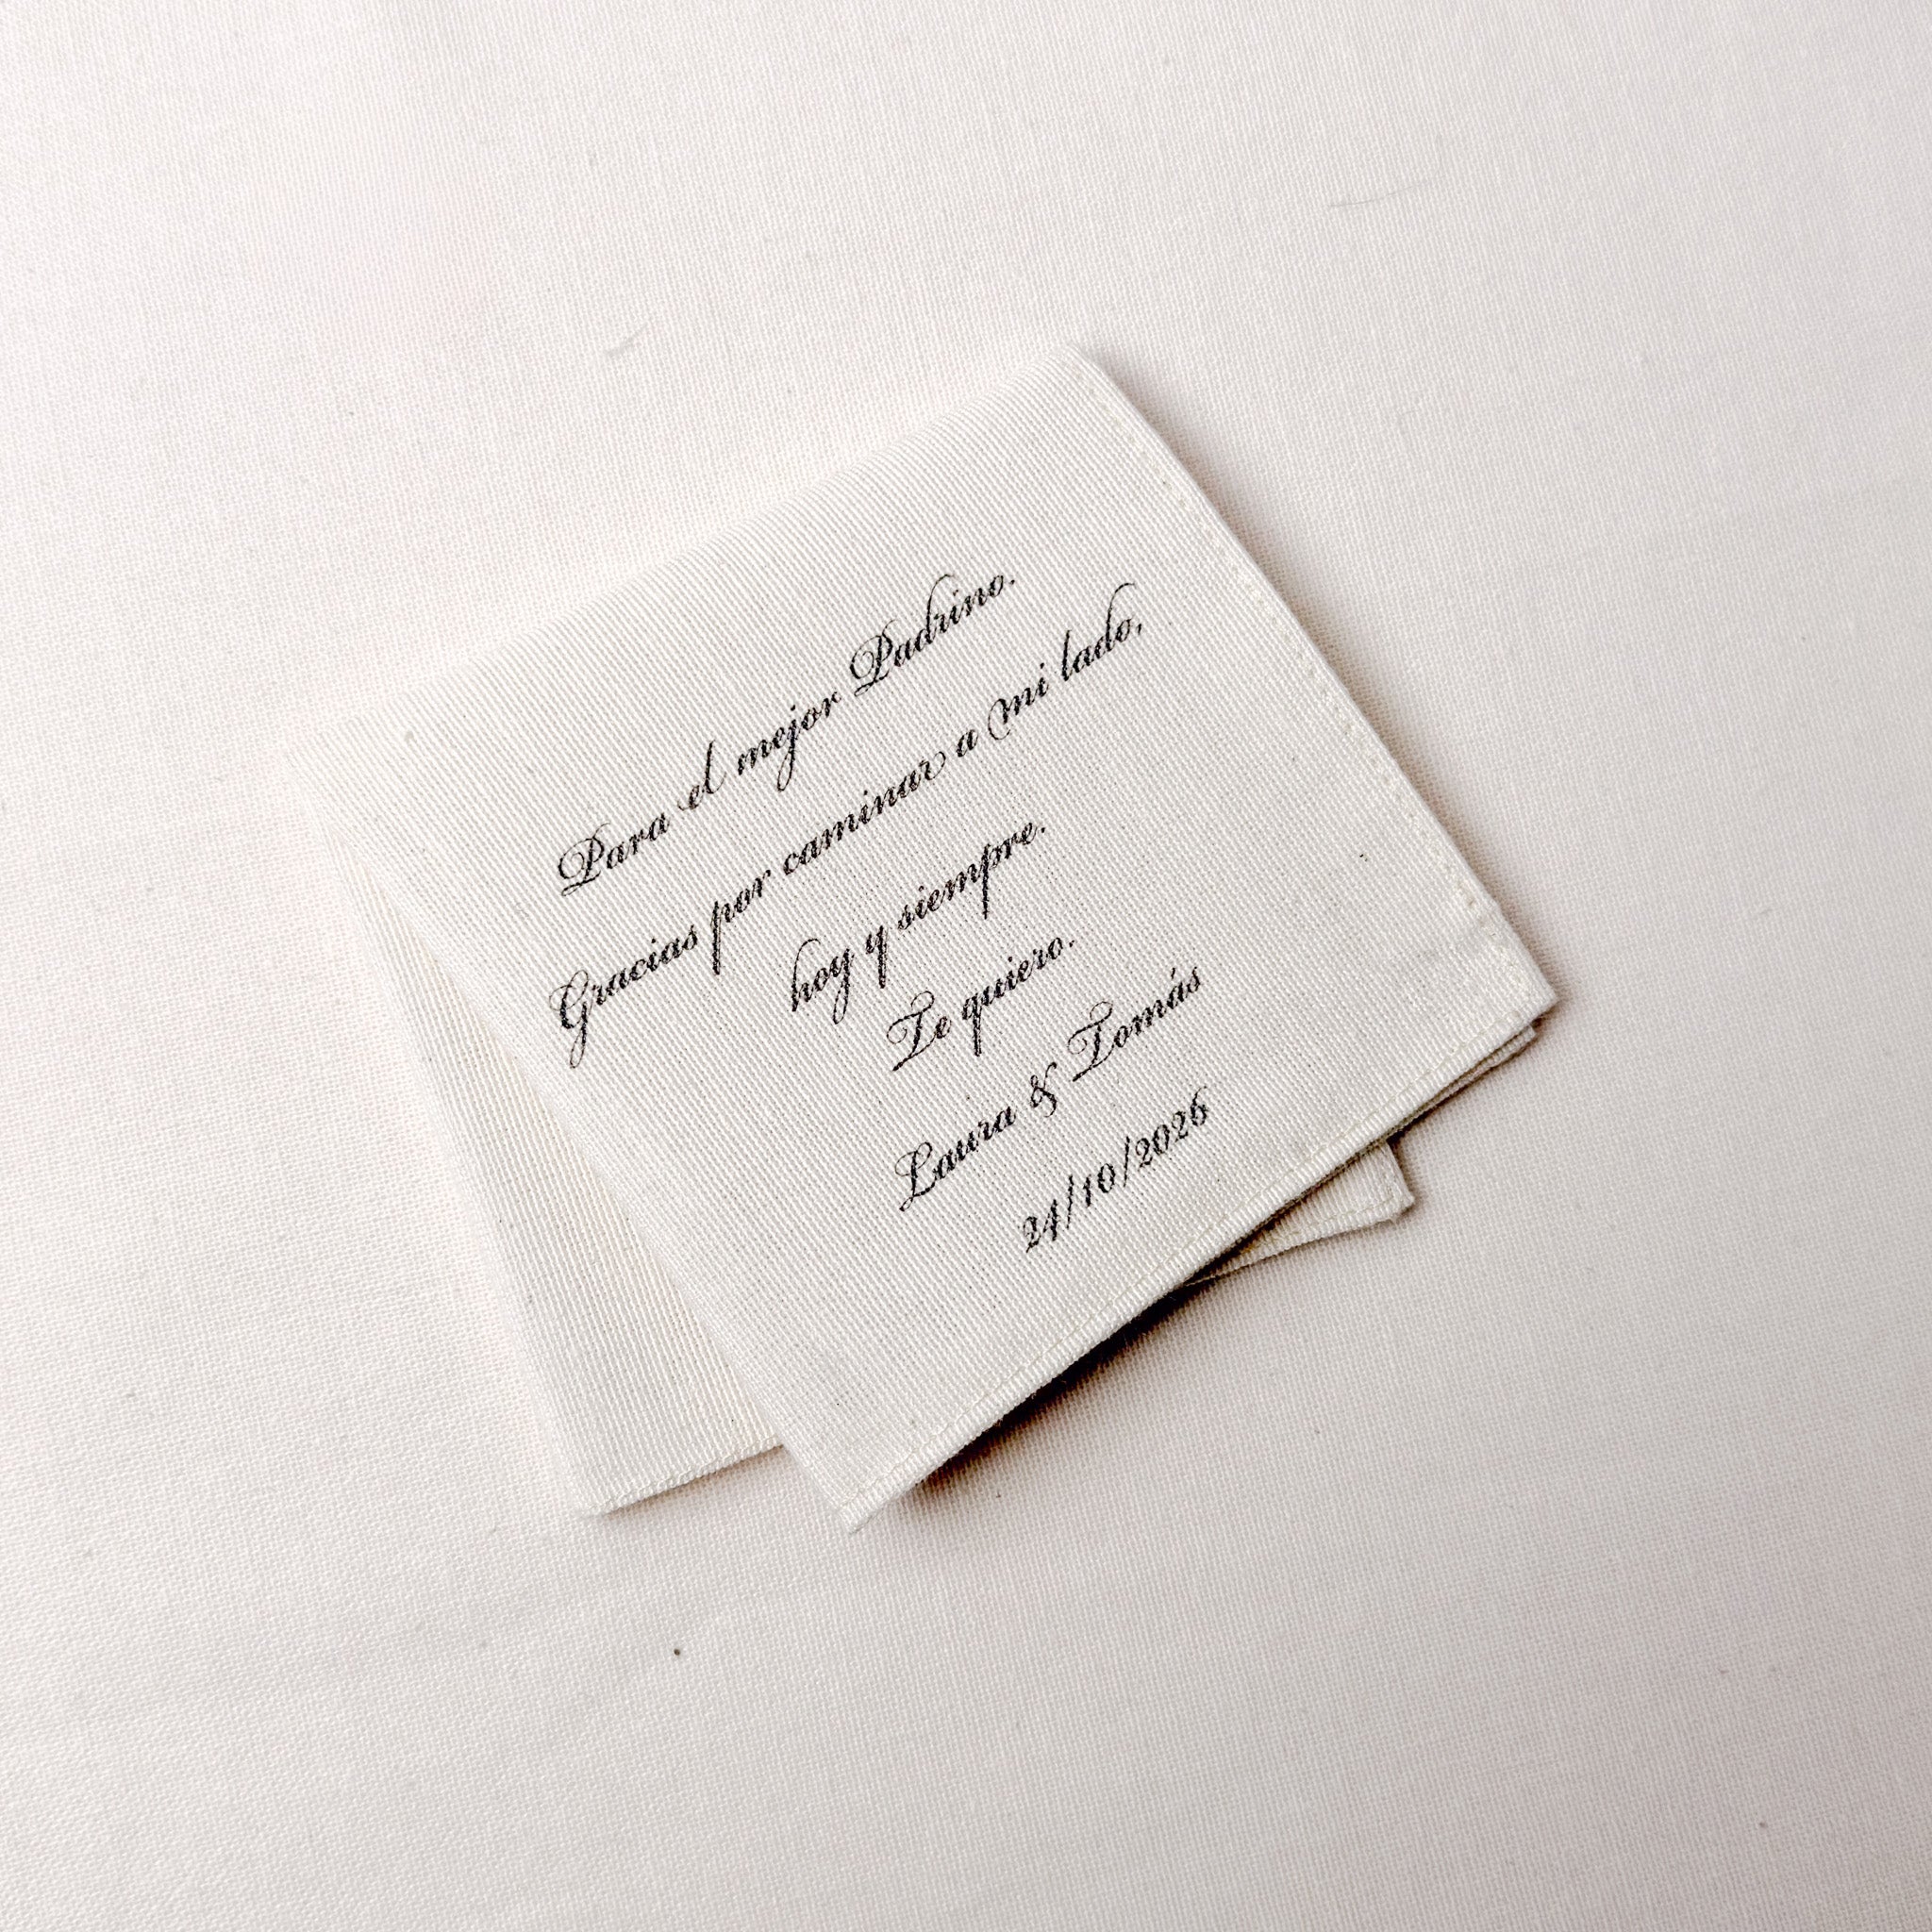 Para el mejor Padrino.
Gracias por caminar a mi lado,
hoy y siempre.
Te quiero.
Laura & Tomás
24/10/2026